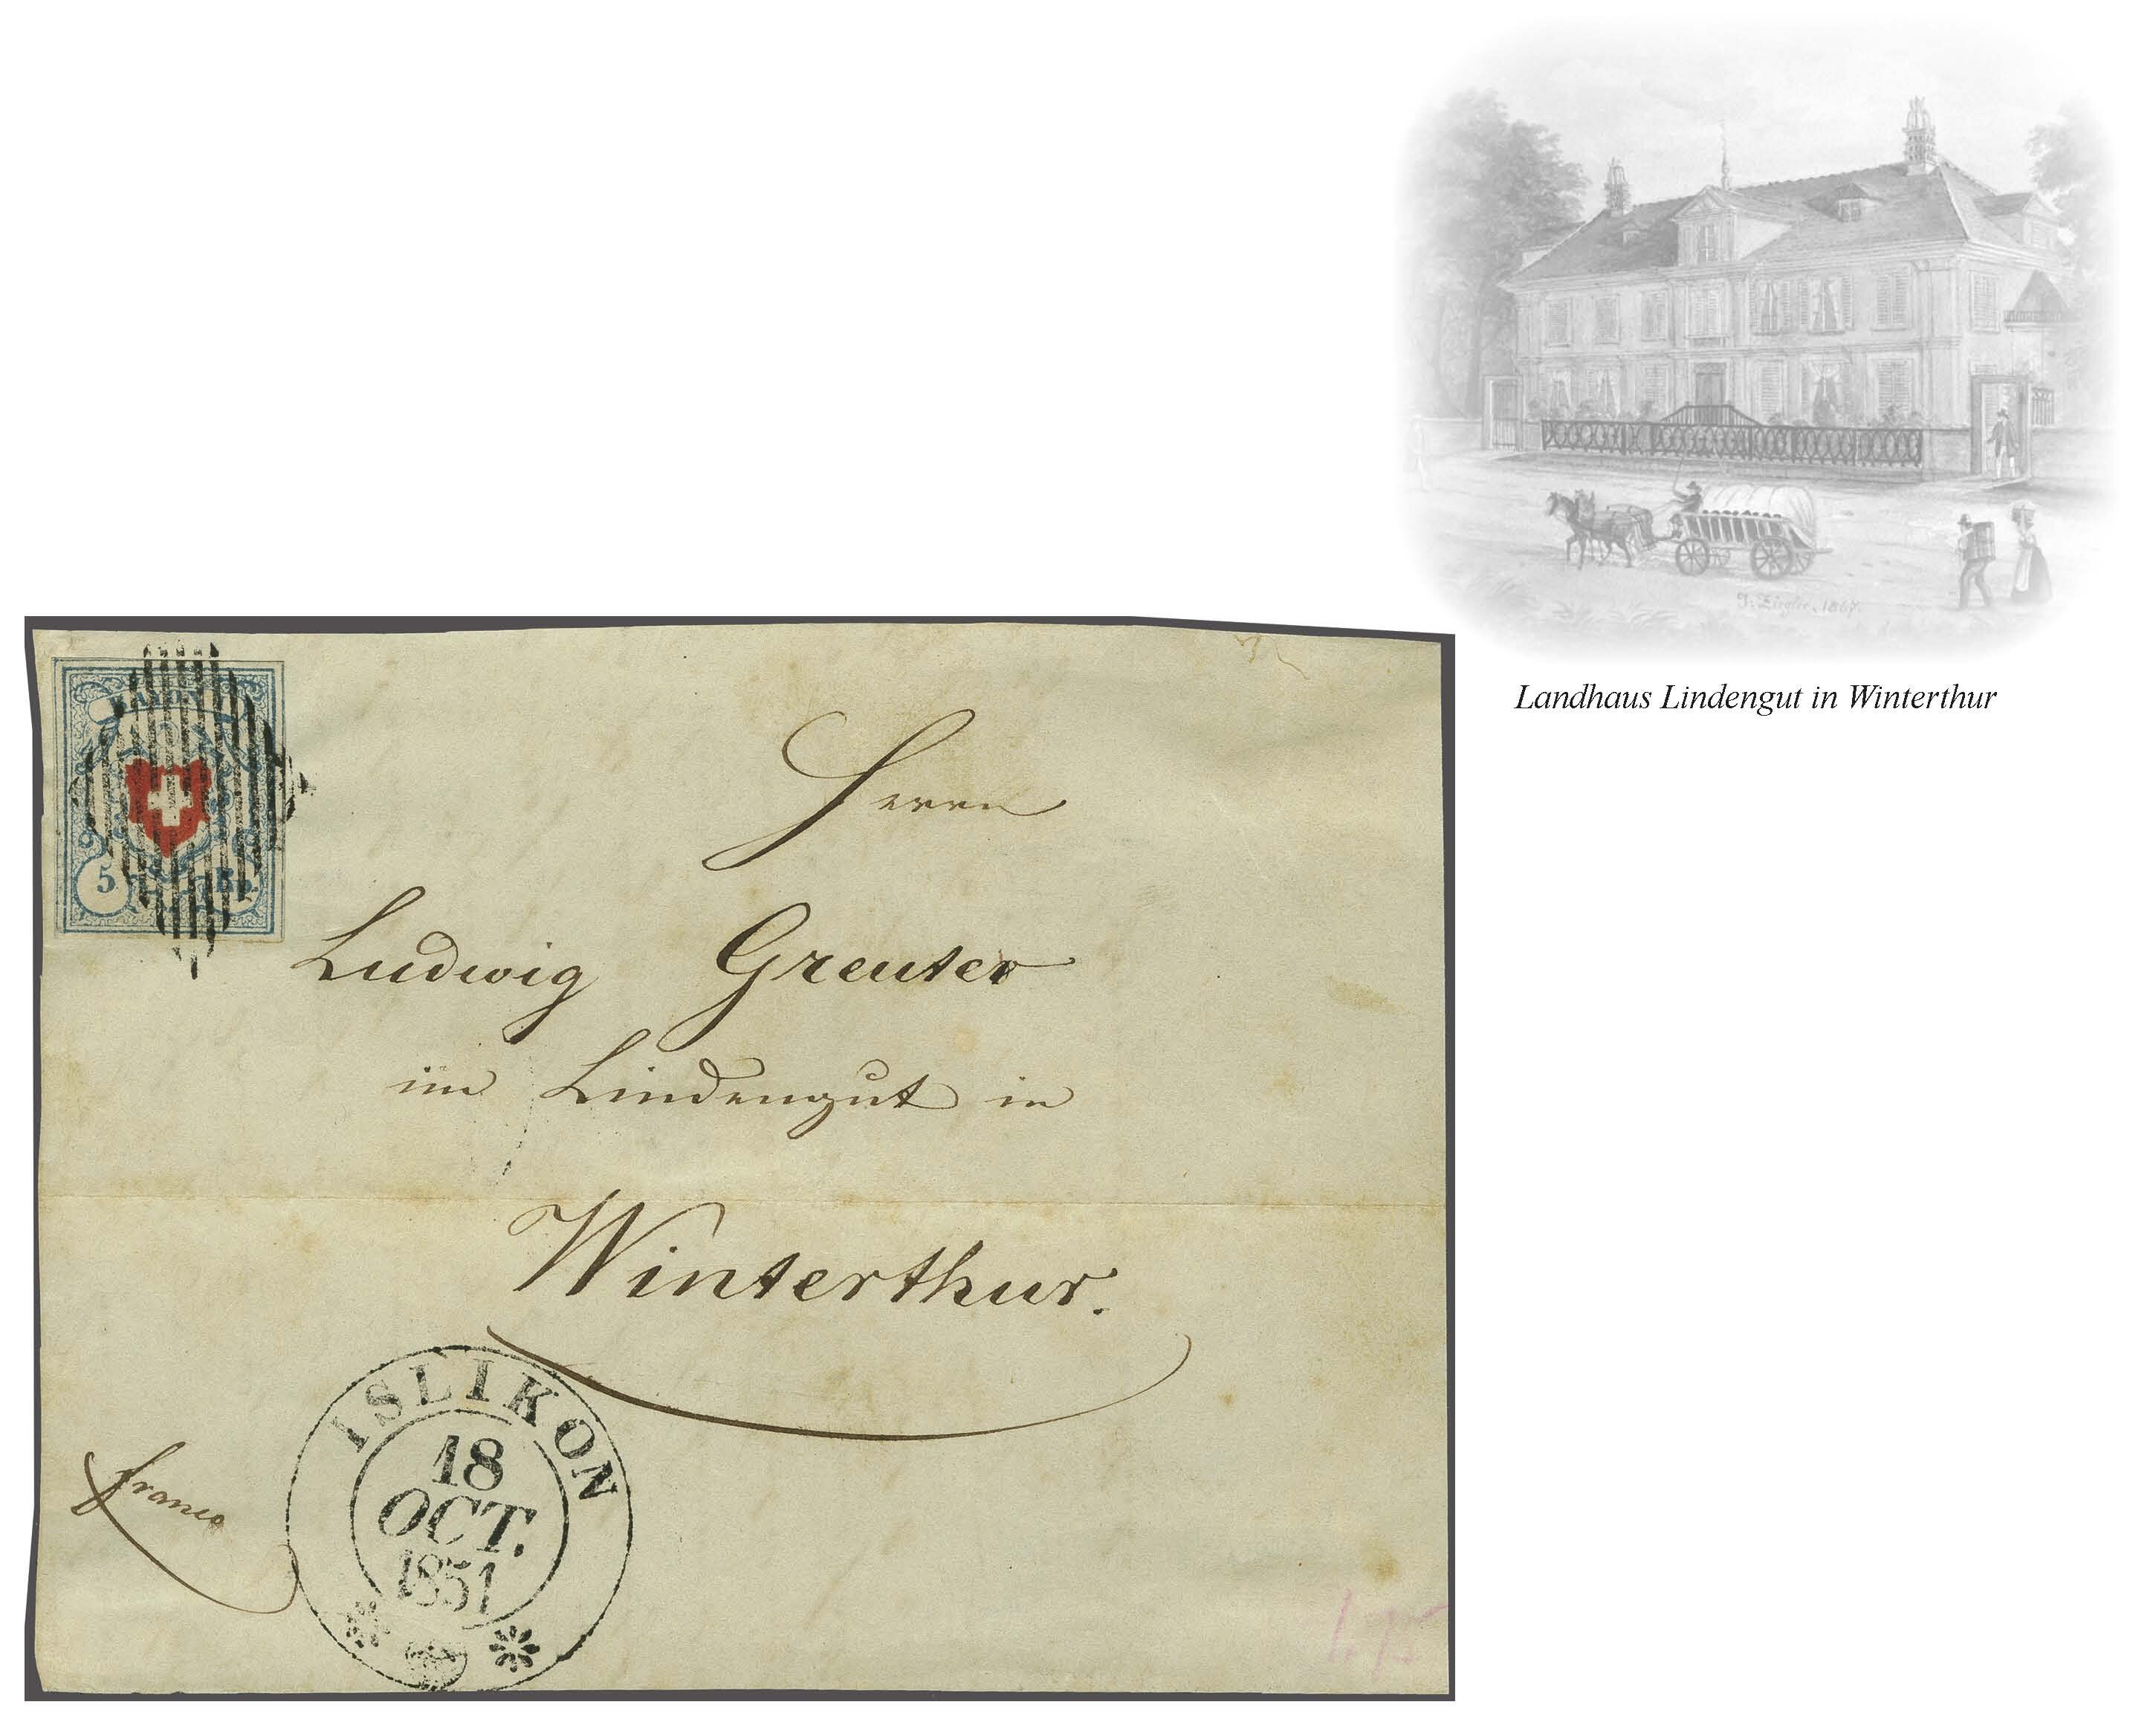 J. Ziegler, 1867.
Landhaus Lindengut in Winterthur
RAYON
5 Rp.
Herrn
Ludwig Greuter
im Lindengut in
Winterthur.
franco
ISLIKON
18
OCT.
1851